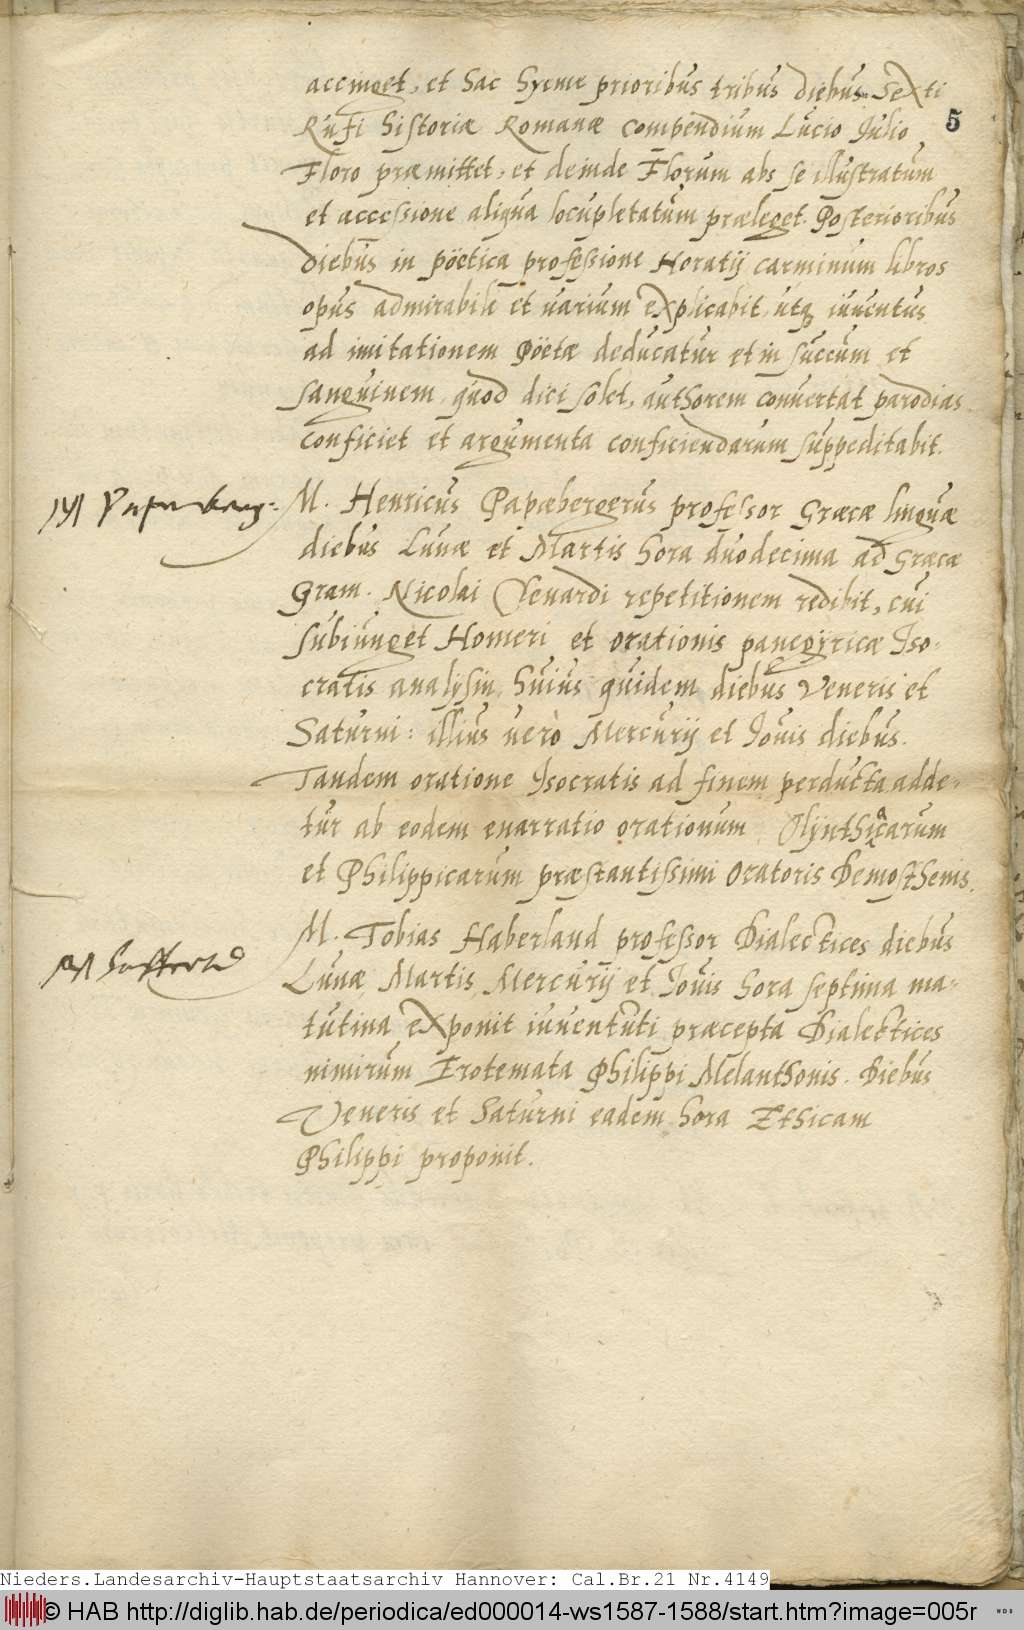 accinget, et hac hyeme prioribus tribus diebus Sexti
5
Rufi historiæ Romanæ compendium Lucio Julio
Floro præmittet, et deinde Florum abs se illustratum
et accessione aliqua locupletatùm præleget. Posterioribus
diebus in pöetica professione Horatij carminum libros
opus admirabile et uarium explicabit, utq iuuentus
ad imitationem Pöetæ deducatur et in succum et
sanguinem, quod dici solet, authorem conuertat parodias
conficiet et argumenta conficiendarum suppeditabit.
M. Henricus Papæbergerus professor Græcæ linguæ
diebus Lunæ et Martis hora duodecima ad Græcæ
Gram. Nicolai Clenardi repetitionem redibit, cui
subiunget Homeri et orationis panegyricæ Iso-
cratis analysin, huius quidem diebus Veneris et
Saturni: illius uerò Mercurij et Jouis diebus.
Tandem oratione Isocratis ad finem perducta adde-
tur ab eodem enarratio orationum Olynthiacarum
et Philippicarum præstantissimi Oratoris Demosthenis.
M. Tobias Haberland professor Dialectices diebus
Lunæ, Martis, Mercurij et Jouis hora septima ma-
tutina exponit iuuentuti præcepta Dialectices
nimirum Erotemata Philippi Melanthonis. Diebus
Veneris et Saturni eadem hora Ethicam
Philippi proponit.
Nieders.Landesarchiv-Hauptstaatsarchiv Hannover: Cal.Br.21 Nr.4149
© HAB http://diglib.hab.de/periodica/ed000014-ws1587-1588/start.htm?image=005r